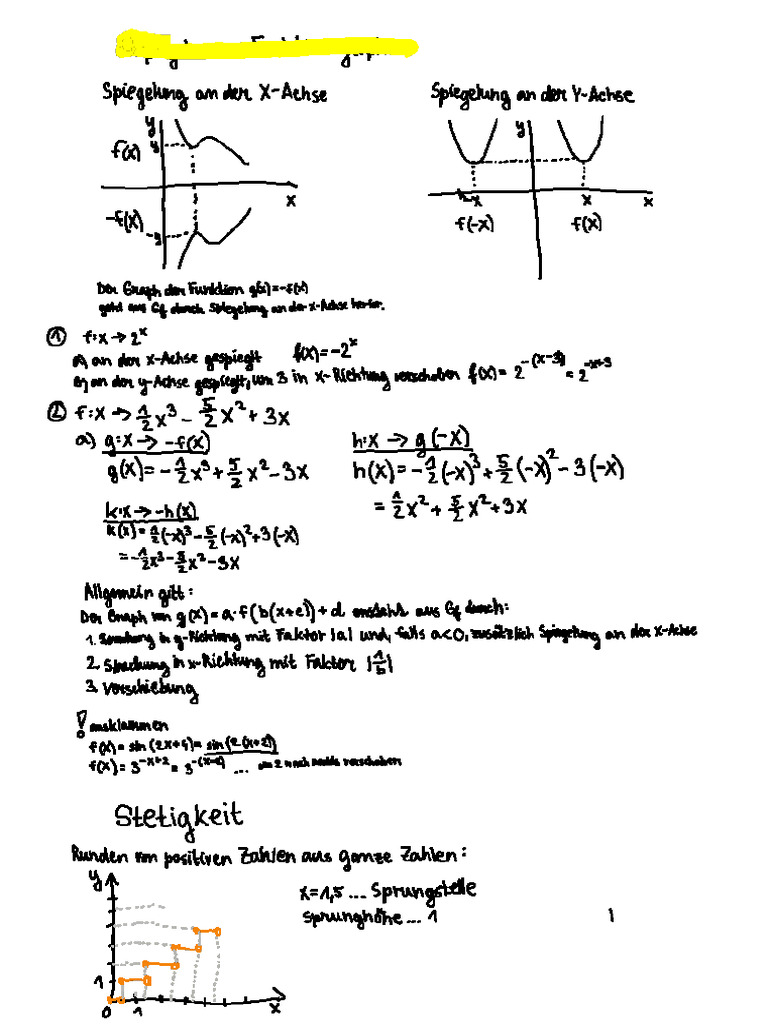 Spiegelung an der X-Achse
Spiegelung an der Y-Achse
y
y
f(x)
x
-f(x)
-y
y
-x
x
x
f(-x)
f(x)
Der Graph der Funktion g(x)=-f(x)
geht aus Gf durch Spiegelung an der x-Achse hervor.
① f:x→2^x
a) an der x-Achse gespiegelt f(x)=-2^x
b) an der y-Achse gespiegelt, um 3 in x-Richtung verschoben f(x)=2^-(x-3)=2^-x+3
② f:x→1/2x³-5/2x²+3x
a) g:x→-f(x)
g(x)=-1/2x³+5/2x²-3x
h:x→g(-x)
h(x)=-1/2(-x)³+5/2(-x)²-3(-x)
=1/2x²+5/2x²+3x
k:x→-h(x)
k(x)=1/2(-x)³-5/2(-x)²+3(-x)
=-1/2x³-5/2x²-3x
Allgemein gilt:
Der Graph von g(x)=a·f(b(x+c))+d entsteht aus Gf durch:
1. Streckung in y-Richtung mit Faktor |a| und, falls a<0, zusätzlich Spiegelung an der x-Achse
2. Streckung in x-Richtung mit Faktor |1/b|
3. Verschiebung
! ausklammern
f(x)=sin(2x+4)=sin(2(x+2))
f(x)=3^-x+2=3^-(x-2) ... um 2 nach rechts verschoben
Stetigkeit
Runden von positiven Zahlen aus ganze Zahlen:
y
x=1,5 ... Sprungstelle
Sprunghöhe ... 1
1
0 1
x